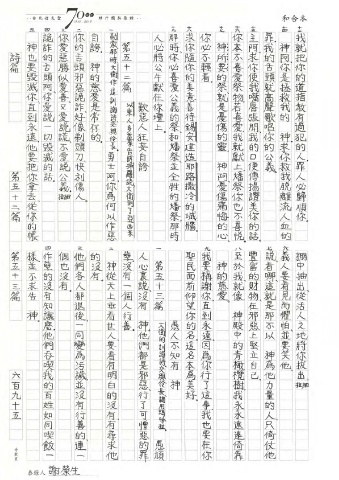 和合本
70
我就把你的道指教有過犯的人罪人必歸順你
神阿你是拯救我的 神求你救我脫離流人血的
罪我的舌頭就高聲歌唱你的公義
主阿求你使我嘴唇張開我的口便傳揚讚美你的話
你本不喜愛祭物若喜愛我就獻上燔祭你也不喜悅
神所要的祭就是憂傷的靈 神阿憂傷痛悔的心
你必不輕看
求你隨你的美意善待錫安建造耶路撒冷的城牆
那時你必喜愛公義的祭和燔祭並全牲的燔祭那時
人必將公牛獻在你壇上
歎惡人狂妄自誇
第五十二篇
勇士阿你為何以作惡
自誇 神的慈愛是常存的
你的舌頭邪惡詭詐好像剃頭刀快利傷人
你愛惡勝似愛善又愛說謊不愛說公義
詭詐的舌頭阿你愛說一切毀滅的話
神也要毀滅你直到永遠他要把你拿去從你的帳
詩篇 第五十二篇
中抽出從活人之地將你拔出
義人要看見而懼怕並要笑他
說看哪這就是那不以 神為他力量的人只倚仗他
豐富的財物在邪惡上堅立自己
至於我就像 神殿中的青橄欖樹我永永遠遠倚靠
神的慈愛
我要稱謝你直到永遠因為你行了這事我也要在你
聖民面前仰望你的名這名本為美好
愚人不知有 神
第五十三篇
愚頑
人心裏說沒有 神他們都是邪惡行了可憎惡的罪
孽沒有一個人行善
神從天上垂看世人要看有明白的沒有有尋求他
的沒有
他們各人都退後一同變為污穢並沒有行善的連一
個也沒有
作孽的沒有知識麼他們吞喫我的百姓如同喫飯一
樣並不求告 神
第五十三篇 六百九十五